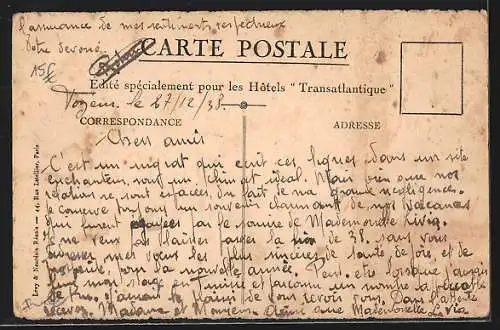 l'assurance de mes sentiments respectueux
Votre devoué
CARTE POSTALE
15f
Édité spécialement pour les Hôtels " Transatlantique "
Tozeur le 27/12/38
CORRESPONDANCE
ADRESSE
Chers amis
C'est un migrat qui écrit ces lignes dans un site
enchanteur, sous un climat idéal. Mais bien que nos
relations se sont espacées, du fait de ma grande negligence
Je conserve toujours un souvenir charmant de nos vacances
qui furent par la présence de Mademoiselle
Je ne veux pas laisser passer la fin de 38, sans vous
envoyer mes voeux les plus sincères de santé de joie, et de
prospérité, pour la nouvelle année. Peut être lorsque j'aurais
mon stage en Tunisie et
j'aurais le plaisir de vous revoir tous. Dans l'attente
recevez Madame et Monsieur ainsi que Mademoiselle
Levy & Neurdein Réunis — 44, Rue Letellier, Paris